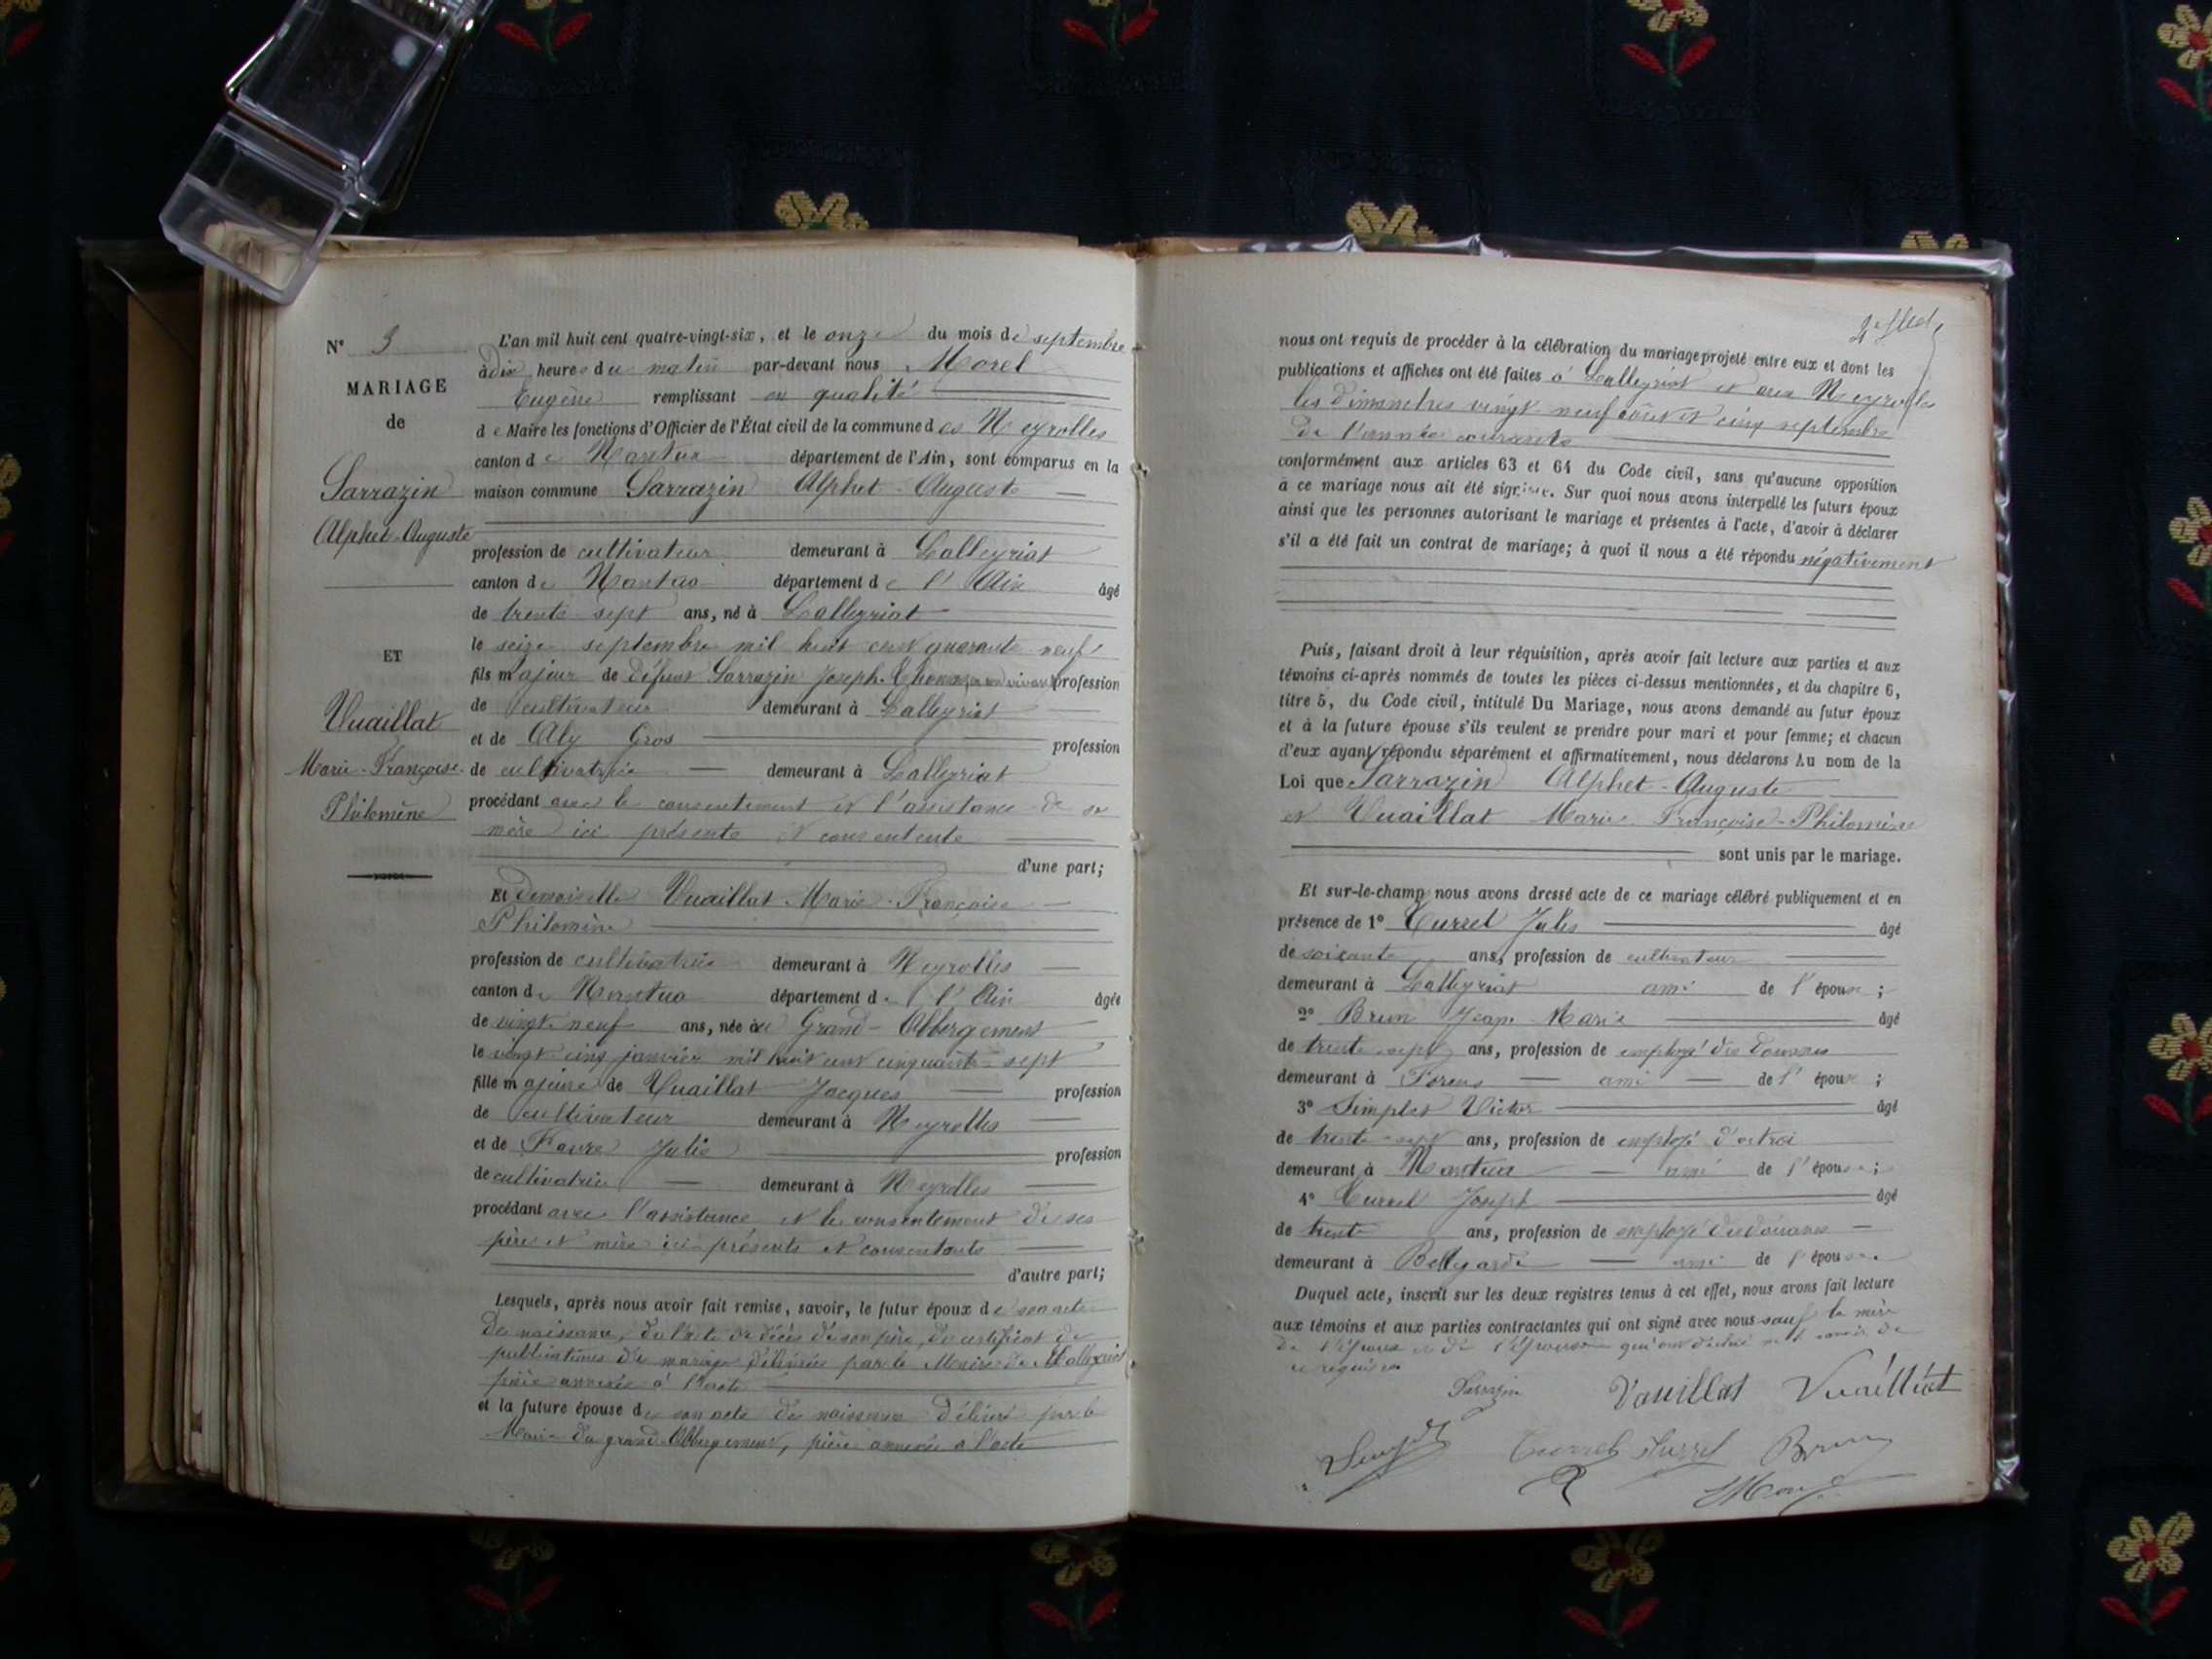 N° 3
MARIAGE
de
Sarrazin
Alphet-Auguste
ET
Vuaillat
Marie-Françoise-
Philomène
L'an mil huit cent quatre-vingt-six, et le onze du mois de septembre
à dix heures du matin par-devant nous Morel
Eugène remplissant en qualité
de Maire les fonctions d'Officier de l'État civil de la commune des Neyrolles
canton de Nantua département de l'Ain, sont comparus en la
maison commune Sarrazin Alphet-Auguste
profession de cultivateur demeurant à Lalleyriat
canton de Nantua département de l'Ain âgé
de trente-sept ans, né à Lalleyriat
le seize septembre mil huit cent quarante-neuf
fils majeur de défunt Sarrazin Joseph-Thomas en son vivant profession
de cultivateur demeurant à Lalleyriat
et de Aly Gros profession
de cultivatrice demeurant à Lalleyriat
procédant avec le consentement et l'assistance de sa
mère ici présente et consentente
d'une part;
Et demoiselle Vuaillat Marie-Françoise
Philomène
profession de cultivatrice demeurant à Neyrolles
canton de Nantua département de l'Ain âgée
de vingt-neuf ans, née au Grand-Abbergement
le vingt-cinq janvier mil huit cent cinquante-sept
fille majeure de Vuaillat Jacques profession
de cultivateur demeurant à Neyrolles
et de Favre Julie profession
de cultivatrice demeurant à Neyrolles
procédant avec l'assistance et le consentement de ses
père et mère ici présents et consentants
d'autre part;
Lesquels, après nous avoir fait remise, savoir, le futur époux de son acte
de naissance, de l'acte de décès de son père, du certificat de
publications de mariage délivrée par le Maire de Lalleyriat
pièce annexée à l'acte
et la future épouse de son acte de naissance délivré par le
Maire du grand-Abbergement, pièce annexée à l'acte
nous ont requis de procéder à la célébration du mariage projeté entre eux et dont les
publications et affiches ont été faites à Lalleyriat et aux Neyrolles
les dimanches vingt-neuf août et cinq septembre
de l'année courante
conformément aux articles 63 et 64 du Code civil, sans qu'aucune opposition
à ce mariage nous ait été signifiée. Sur quoi nous avons interpellé les futurs époux
ainsi que les personnes autorisant le mariage et présentes à l'acte, d'avoir à déclarer
s'il a été fait un contrat de mariage; à quoi il nous a été répondu négativement
Puis, faisant droit à leur réquisition, après avoir fait lecture aux parties et aux
témoins ci-après nommés de toutes les pièces ci-dessus mentionnées, et du chapitre 6,
titre 5, du Code civil, intitulé Du Mariage, nous avons demandé au futur époux
et à la future épouse s'ils veulent se prendre pour mari et pour femme; et chacun
d'eux ayant répondu séparément et affirmativement, nous déclarons Au nom de la
Loi que Sarrazin Alphet-Auguste
et Vuaillat Marie-Françoise-Philomène
sont unis par le mariage.
Et sur-le-champ nous avons dressé acte de ce mariage célébré publiquement et en
présence de 1° Turrel Jules âgé
de soixante ans, profession de cultivateur
demeurant à Lalleyriat ami de l'épouse;
2° Brun Jean-Marie âgé
de trente-sept ans, profession de employé des douanes
demeurant à Forens ami de l'époux;
3° Simplet Victor âgé
de trente-sept ans, profession de employé d'octroi
demeurant à Nantua ami de l'épouse;
4° Turrel Joseph âgé
de trente ans, profession de employé des douanes
demeurant à Bellegarde ami de l'épouse
Duquel acte, inscrit sur les deux registres tenus à cet effet, nous avons fait lecture
aux témoins et aux parties contractantes qui ont signé avec nous sauf la mère
de l'époux et de l'épouse qui ont déclaré ne savoir de
ce requises
Sarrazin Vauillat Vuaillat
Turrel Turrel Brun